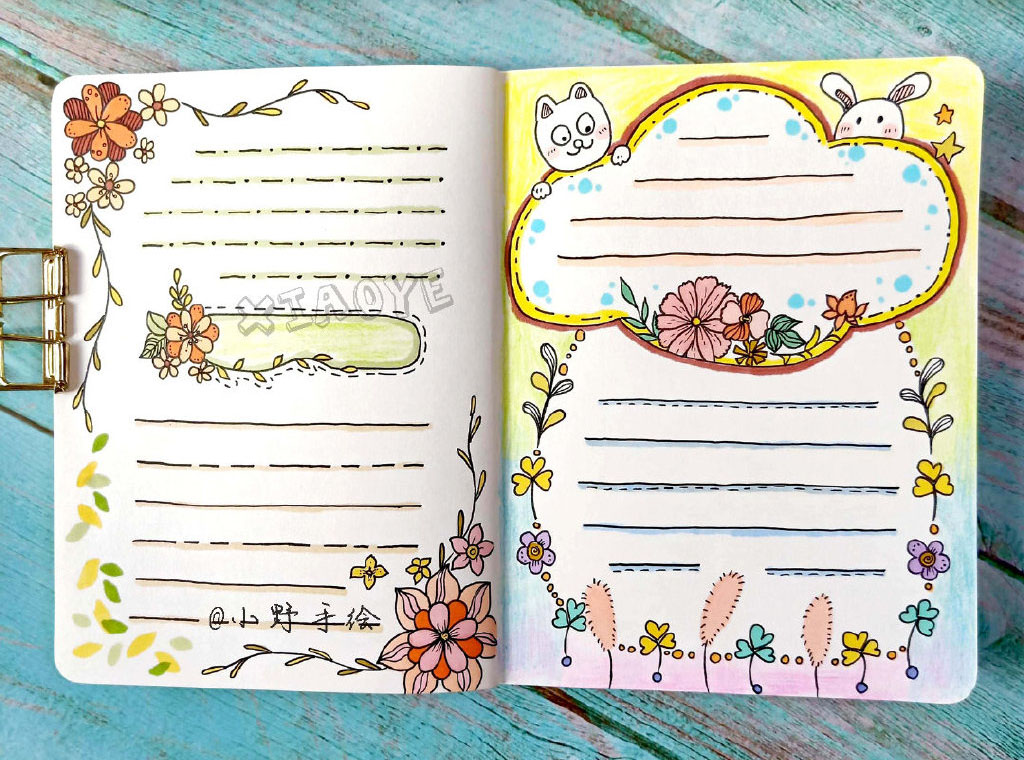 XIAOYE
@小野手绘